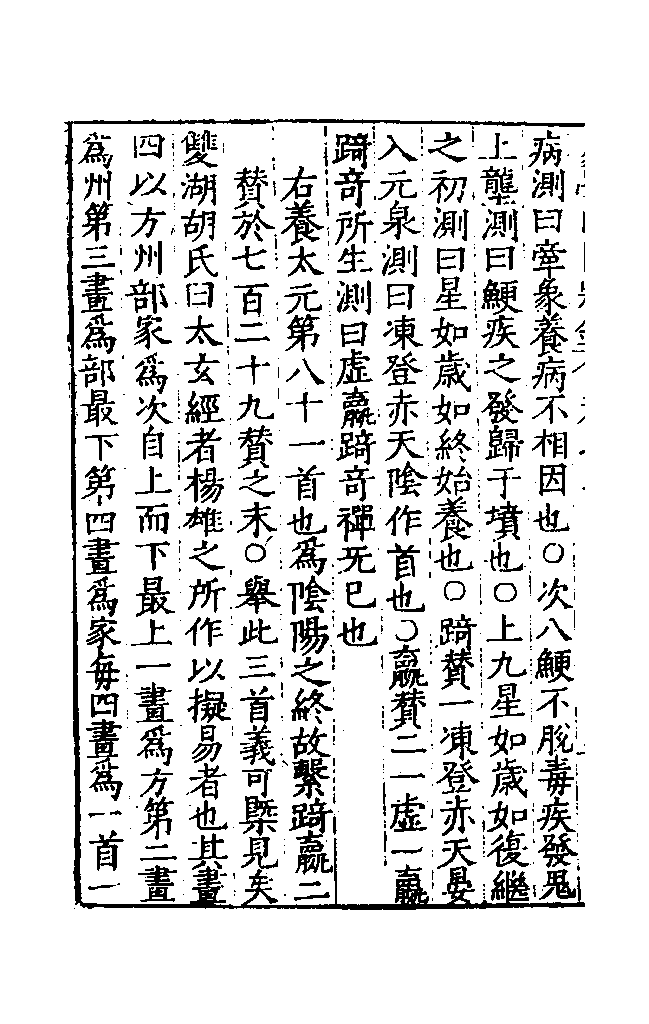 病測曰牽象養病不相因也○次八鯁不脫毒疾發鬼
上壟測曰鯁疾之發歸于墳也○上九星如歲如復繼
之初測曰星如歲如終始養也○踦賛一凍登赤天晏
入元泉測曰凍登赤天陰作首也○嬴賛二一虛一嬴
踦竒所生測曰虛嬴踦竒禪旡巳也
右養太元第八十一首也爲陰陽之終故繫踦嬴二
賛於七百二十九賛之末○舉此三首義可槩見矣
雙湖胡氏曰太玄經者楊雄之所作以擬易者也其畫
四以方州部家爲次自上而下最上一畫爲方第二畫
爲州第三畫爲部最下第四畫爲家每四畫爲一首一